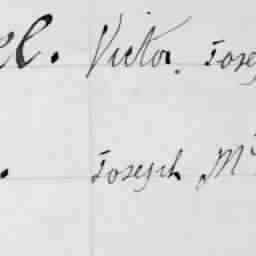 el. Victor. Jose
. Joseph Mc